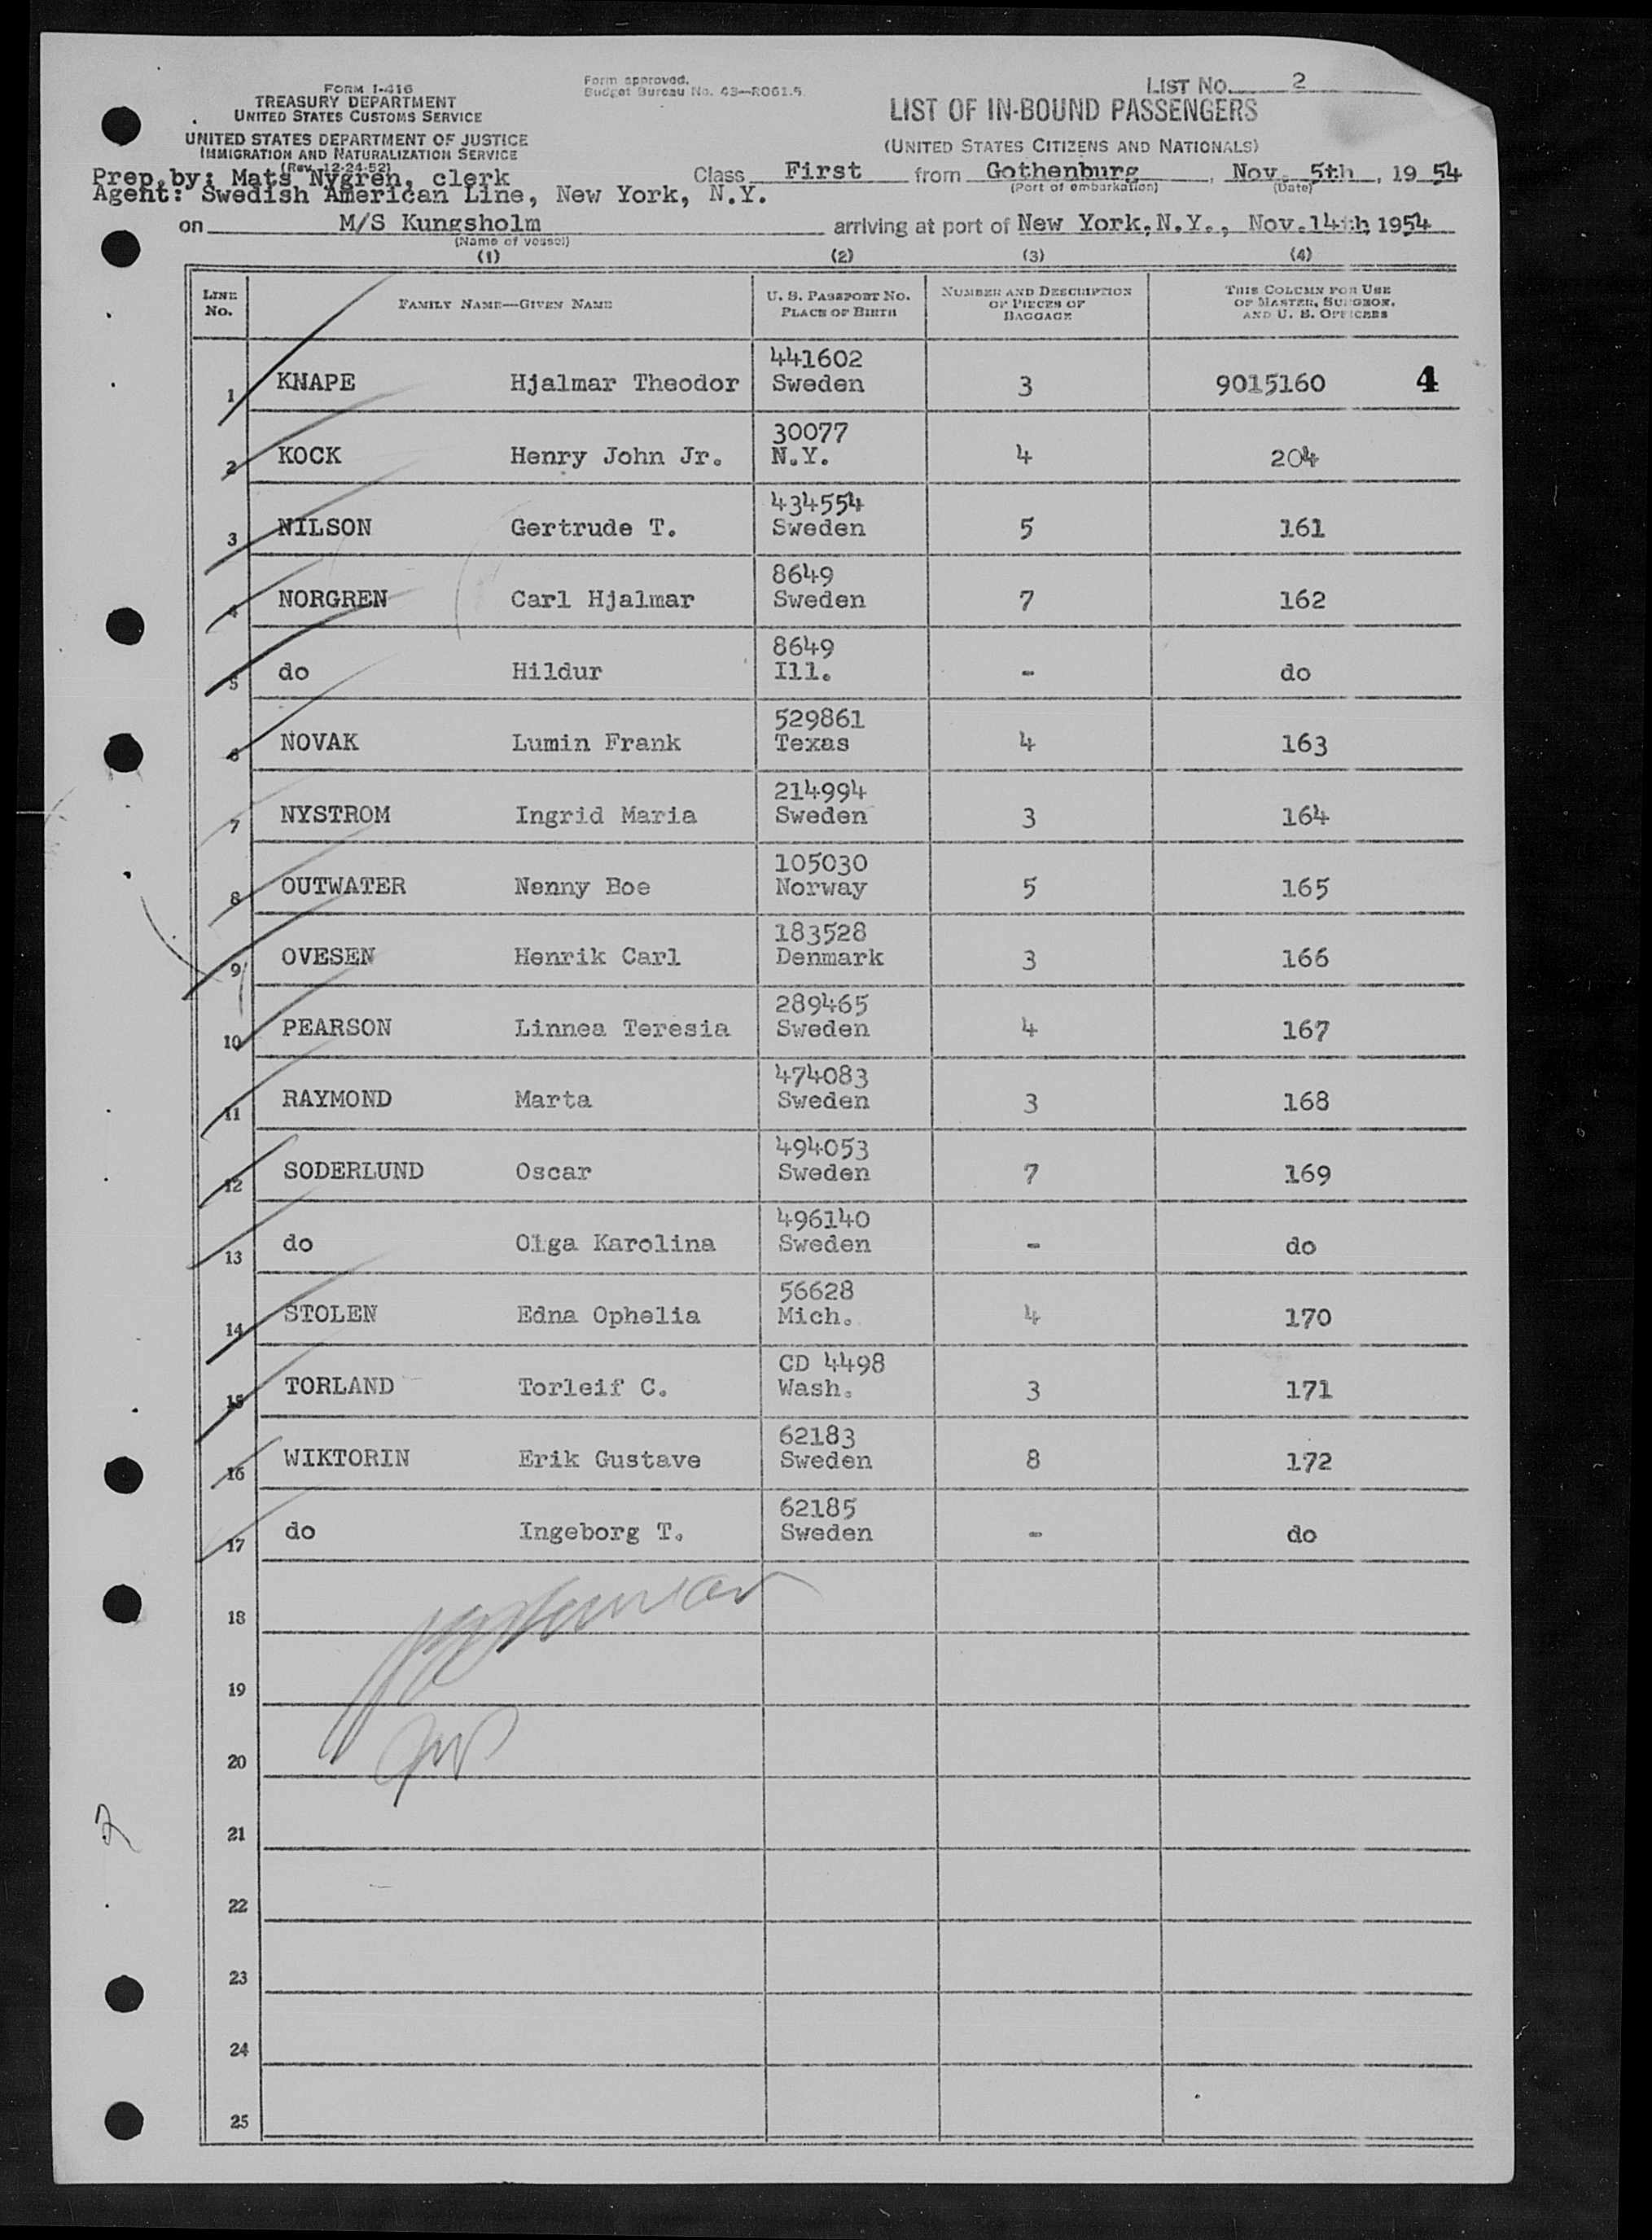 FORM I-416
TREASURY DEPARTMENT
UNITED STATES CUSTOMS SERVICE
UNITED STATES DEPARTMENT OF JUSTICE
IMMIGRATION AND NATURALIZATION SERVICE
(Rev. 12-24-52)
Form approved.
Budget Bureau No. 43-R061.5
LIST No. 2
LIST OF IN-BOUND PASSENGERS
(UNITED STATES CITIZENS AND NATIONALS)
Prep.by: Mats Nygren, clerk
Agent: Swedish American Line, New York, N.Y.
Class First from Gothenburg, Nov. 5th, 19 54
(Port of embarkation) (Date)
on M/S Kungsholm arriving at port of New York, N.Y., Nov.14th, 1954
(Name of vessel)
(1) (2) (3) (4)
LINE No. FAMILY NAME—GIVEN NAME U. S. PASSPORT NO. PLACE OF BIRTH NUMBER AND DESCRIPTION OF PIECES OF BAGGAGE THIS COLUMN FOR USE OF MASTER, SURGEON, AND U. S. OFFICERS
441602
1 KNAPE Hjalmar Theodor Sweden 3 9015160 4
30077
2 KOCK Henry John Jr. N.Y. 4 204
434554
3 NILSON Gertrude T. Sweden 5 161
8649
4 NORGREN Carl Hjalmar Sweden 7 162
8649
5 do Hildur Ill. - do
529861
6 NOVAK Lumin Frank Texas 4 163
214994
7 NYSTROM Ingrid Maria Sweden 3 164
105030
8 OUTWATER Nenny Boe Norway 5 165
183528
9 OVESEN Henrik Carl Denmark 3 166
289465
10 PEARSON Linnea Teresia Sweden 4 167
474083
11 RAYMOND Marta Sweden 3 168
494053
12 SODERLUND Oscar Sweden 7 169
496140
13 do Olga Karolina Sweden - do
56628
14 STOLEN Edna Ophelia Mich. 4 170
CD 4498
15 TORLAND Torleif C. Wash. 3 171
62183
16 WIKTORIN Erik Gustave Sweden 8 172
62185
17 do Ingeborg T. Sweden - do
18
19
20
21
22
23
24
25